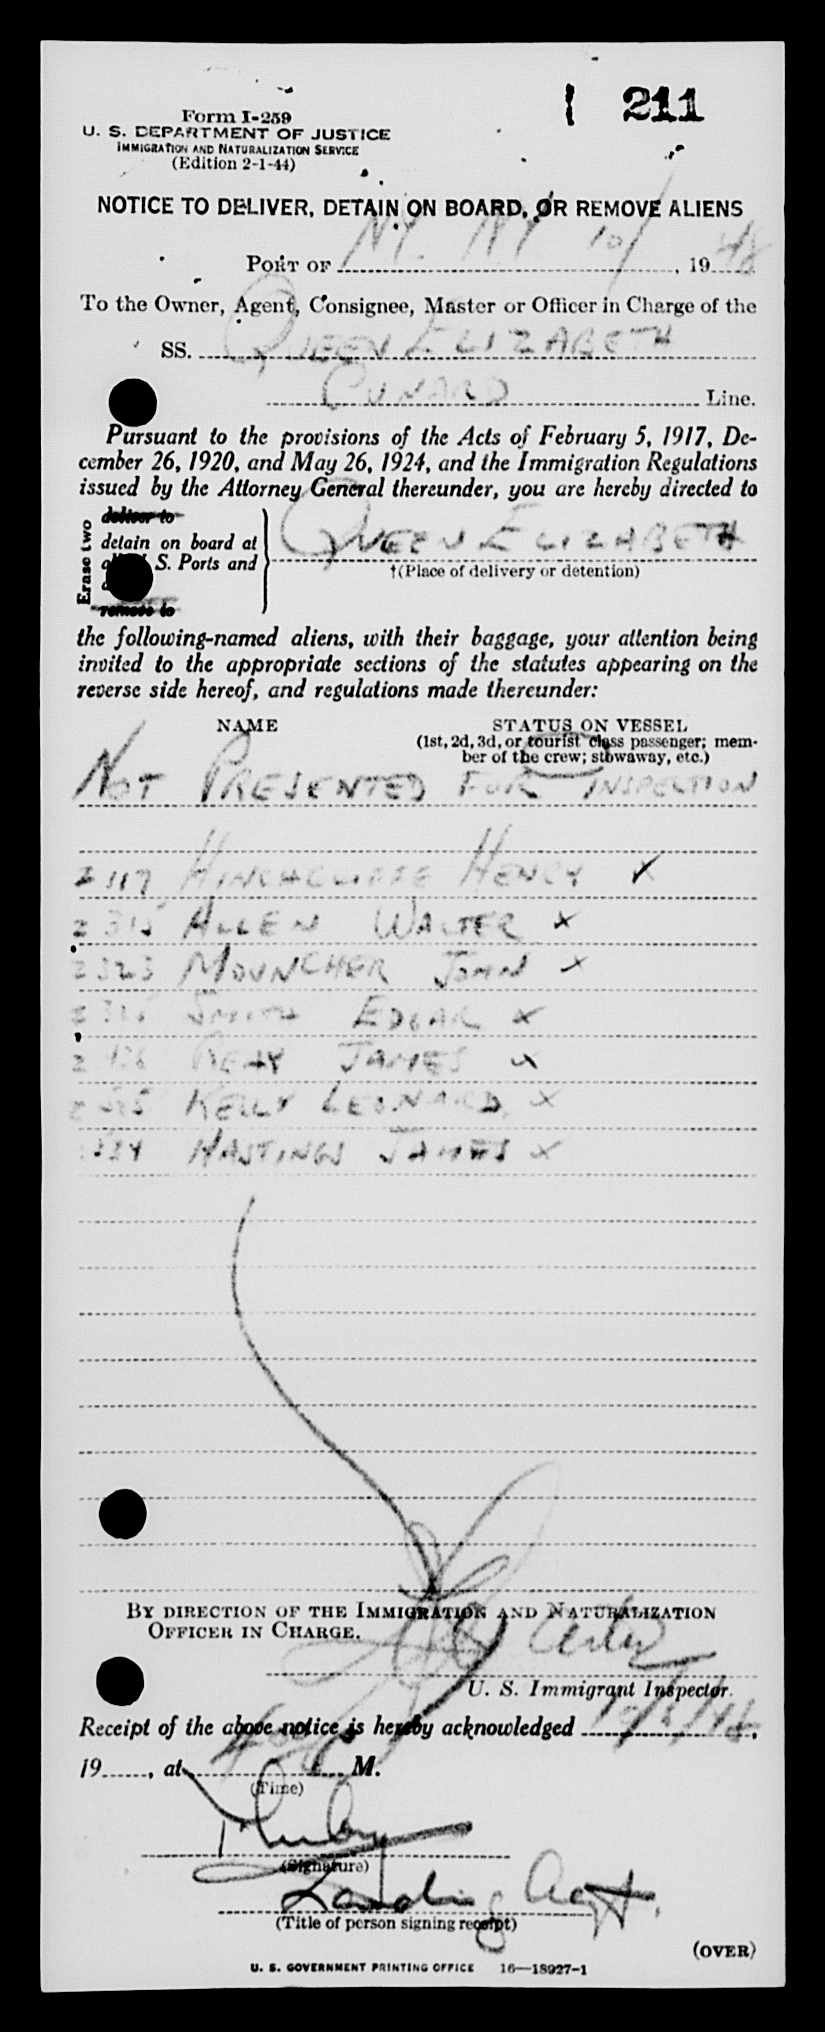 211
Form I-259
U. S. DEPARTMENT OF JUSTICE
IMMIGRATION AND NATURALIZATION SERVICE
(Edition 2-1-44)
NOTICE TO DELIVER, DETAIN ON BOARD, OR REMOVE ALIENS
PORT OF N.Y. NY 10/ , 1948
To the Owner, Agent, Consignee, Master or Officer in Charge of the
SS. QUEEN ELIZABETH
CUNARD Line.
Pursuant to the provisions of the Acts of February 5, 1917, De-
cember 26, 1920, and May 26, 1924, and the Immigration Regulations
issued by the Attorney General thereunder, you are hereby directed to
Erase two
deliver to
detain on board at
S. Ports and
remove to
QUEEN ELIZABETH
†(Place of delivery or detention)
the following-named aliens, with their baggage, your attention being
invited to the appropriate sections of the statutes appearing on the
reverse side hereof, and regulations made thereunder:
NAME STATUS ON VESSEL
(1st, 2d, 3d, or tourist class passenger; mem-
ber of the crew; stowaway, etc.)
NOT PRESENTED FOR INSPECTION
Z 117 HINCHCLIFFE HENRY X
Z 315 ALLEN WALTER X
Z 323 MOUNCHER JOHN X
SMITH EDGAR X
JAMES X
KELLY LEONARD X
HASTINGS JAMES X
BY DIRECTION OF THE IMMIGRATION AND NATURALIZATION
OFFICER IN CHARGE.
U. S. Immigrant Inspector.
Receipt of the above notice is hereby acknowledged
19 , at M.
(Time)
(Signature)
Landing Agt.
(Title of person signing receipt)
(OVER)
U. S. GOVERNMENT PRINTING OFFICE 16—18927-1